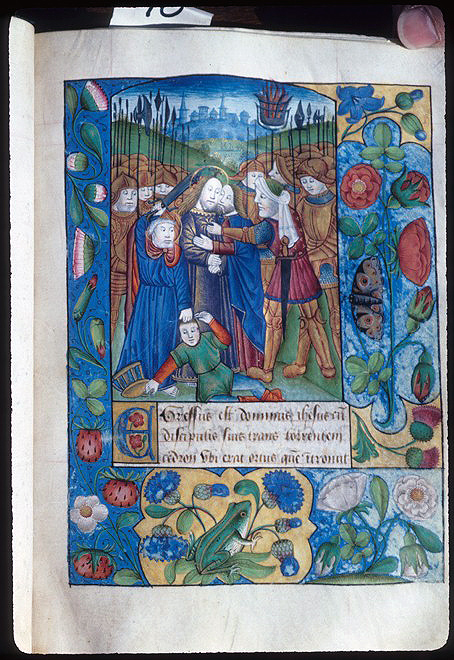 Egressus est dominus ihesus cū
discipulis suis trans torrentem
cedron vbi erat ortus quē ītroiuit